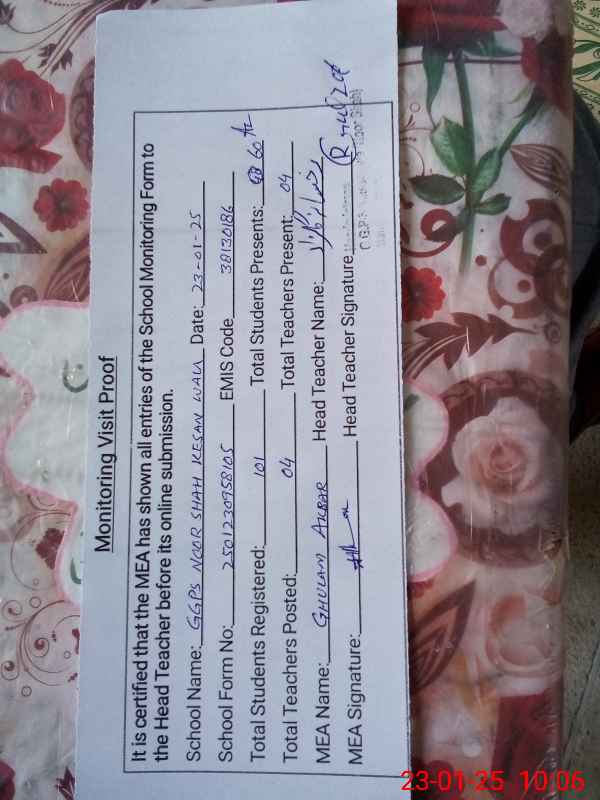 Monitoring Visit Proof
It is certified that the MEA has shown all entries of the School Monitoring Form to
the Head Teacher before its online submission.
School Name: GGPS NOOR SHAH KESAN WALI Date: 23-01-25
School Form No: 2501230958105 EMIS Code 38130186
Total Students Registered: 101 Total Students Presents: 60
Total Teachers Posted: 04 Total Teachers Present: 04
MEA Name: GHULAM AKBAR Head Teacher Name:
MEA Signature: Head Teacher Signature
23-01-25 10:05